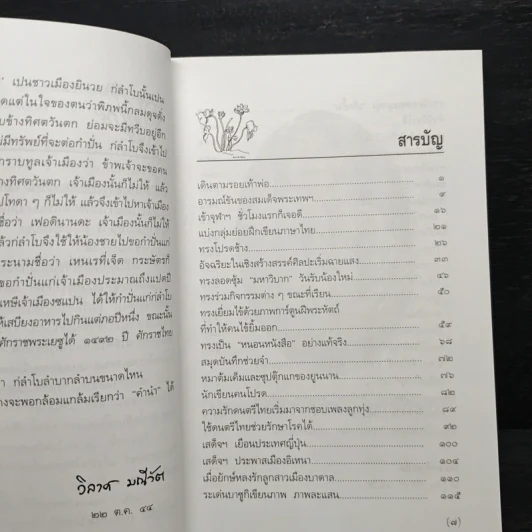 ” เปนชาวเมืองยินวย ก่ลำโบนั้นเปน
ดแต่ในใจของตนว่าพิภพนี้กลมดุจดั่ง
บข้างทิศตวันตก ย่อมจะมีทวีบอยู่อีก
ม่มีทรัพย์ที่จะต่อกำปั่น ก่ลำโบจึงเข้าไป
กราบทูลเจ้าเมืองว่า ข้าพเจ้าจะขอคน
างทิศตวันตก เจ้าเมืองนั้นก็ไม่ให้ แล้ว
ปโทดา ๆ ก็ไม่ให้ แล้วจึงเข้าไปหาเจ้าเมือง
ชื่อว่า เฟอดินานดะ เจ้าเมืองนั้นก็ไม่ให้
ล้วก่ลำโบจึงใช้ให้น้องชายไปขอกำปั่นแก่
ระนามชื่อว่า เหนเรที่เจ็ด กระษัตรก็
กำปั่นแก่เจ้าเมืองประมาณถึงแปดปี
เหษีเจ้าเมืองซแปน ได้ให้กำปั่นแก่ก่ลำโบ
ห้เสบียงอาหารไปกินแต่ภอปีหนึ่ง ขณะนั้น
ศักราชพระเยซูได้ ๑๔๙๒ ปี ศักราชไทย
า ก่ลำโบลำบากลำบนขนาดไหน
างจะพอกล้อมแกล้มเรียกว่า “คำนำ” ได้
วิลาศ มณีวัต
๒๒ ต.ค. ๔๔
สารบัญ
เดินตามรอยเท้าพ่อ ๑
อารมณ์ขันของสมเด็จพระเทพฯ ๙
เข้าจุฬาฯ ชั่วโมงแรกก็เจอดี ๑๖
แบ่งกลุ่มย่อยฝึกเขียนภาษาไทย ๒๑
ทรงโปรดช้าง ๒๖
อัจฉริยะในเชิงสร้างสรรค์ศิลปะเริ่มฉายแสง ๓๓
ทรงลอดซุ้ม “มหาวิบาก” วันรับน้องใหม่ ๔๖
ทรงร่วมกิจกรรมต่าง ๆ ขณะที่เรียน ๕๐
ทรงเยี่ยมไข้ด้วยภาพการ์ตูนฝีพระหัตถ์
ที่ทำให้คนไข้ยิ้มออก ๕๙
ทรงเป็น “หนอนหนังสือ” อย่างแท้จริง ๖๘
สมุดบันทึกช่วยจำ ๗๒
หมาต้มเค็มและซุปตุ๊กแกของยูนนาน ๗๖
นักเขียนคนโปรด ๘๒
ความรักดนตรีไทยเริ่มมาจากชอบเพลงลูกทุ่ง ๘๙
ใช้ดนตรีไทยช่วยรักษาโรคได้ ๙๒
เสด็จฯ เยือนประเทศญี่ปุ่น ๑๐๐
เสด็จฯ ประพาสเมืองอิเหนา ๑๐๔
เมื่อยักษ์หลงรักลูกสาวเมืองบาดาล ๑๑๐
ระเด่นบาซูกิเขียนภาพ ภาพละแสน ๑๑๕
(๗)